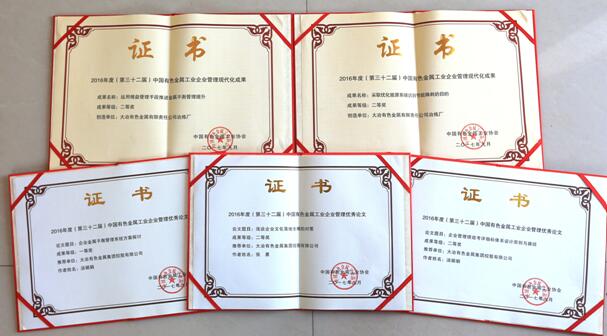 证书
2016年度（第三十二届）中国有色金属工业企业管理现代化成果
成果名称：运用精益管理手段推进金属平衡管理提升
成果等级：二等奖
创造单位：大冶有色金属有限责任公司冶炼厂
中国有色金属工业协会
二〇一七年九月
证书
2016年度（第三十二届）中国有色金属工业企业管理现代化成果
成果名称：采取优化能源系统达到节能降耗的目的
成果等级：二等奖
创造单位：大冶有色金属有限责任公司冶炼厂
中国有色金属工业协会
二〇一七年九月
证书
2016年度（第三十二届）中国有色金属工业企业管理优秀论文
论文题目：企业金属平衡管理系统方案探讨
成果等级：一等奖
推荐单位：大冶有色金属集团控股有限公司
作者姓名：
中国有色金属工业协会
二〇一七年九月
证书
2016年度（第三十二届）中国有色金属工业企业管理优秀论文
论文题目：浅谈企业文化落地生根的对策
成果等级：二等奖
推荐单位：大冶有色金属集团控股有限公司
作者姓名：张
中国有色金属工业协会
二〇一七年九月
证书
2016年度（第三十二届）中国有色金属工业企业管理优秀论文
论文题目：企业管理绩效考评指标体系设计原则与路径
成果等级：二等奖
推荐单位：大冶有色金属集团控股有限公司
作者姓名：
中国有色金属工业协会
二〇一七年九月